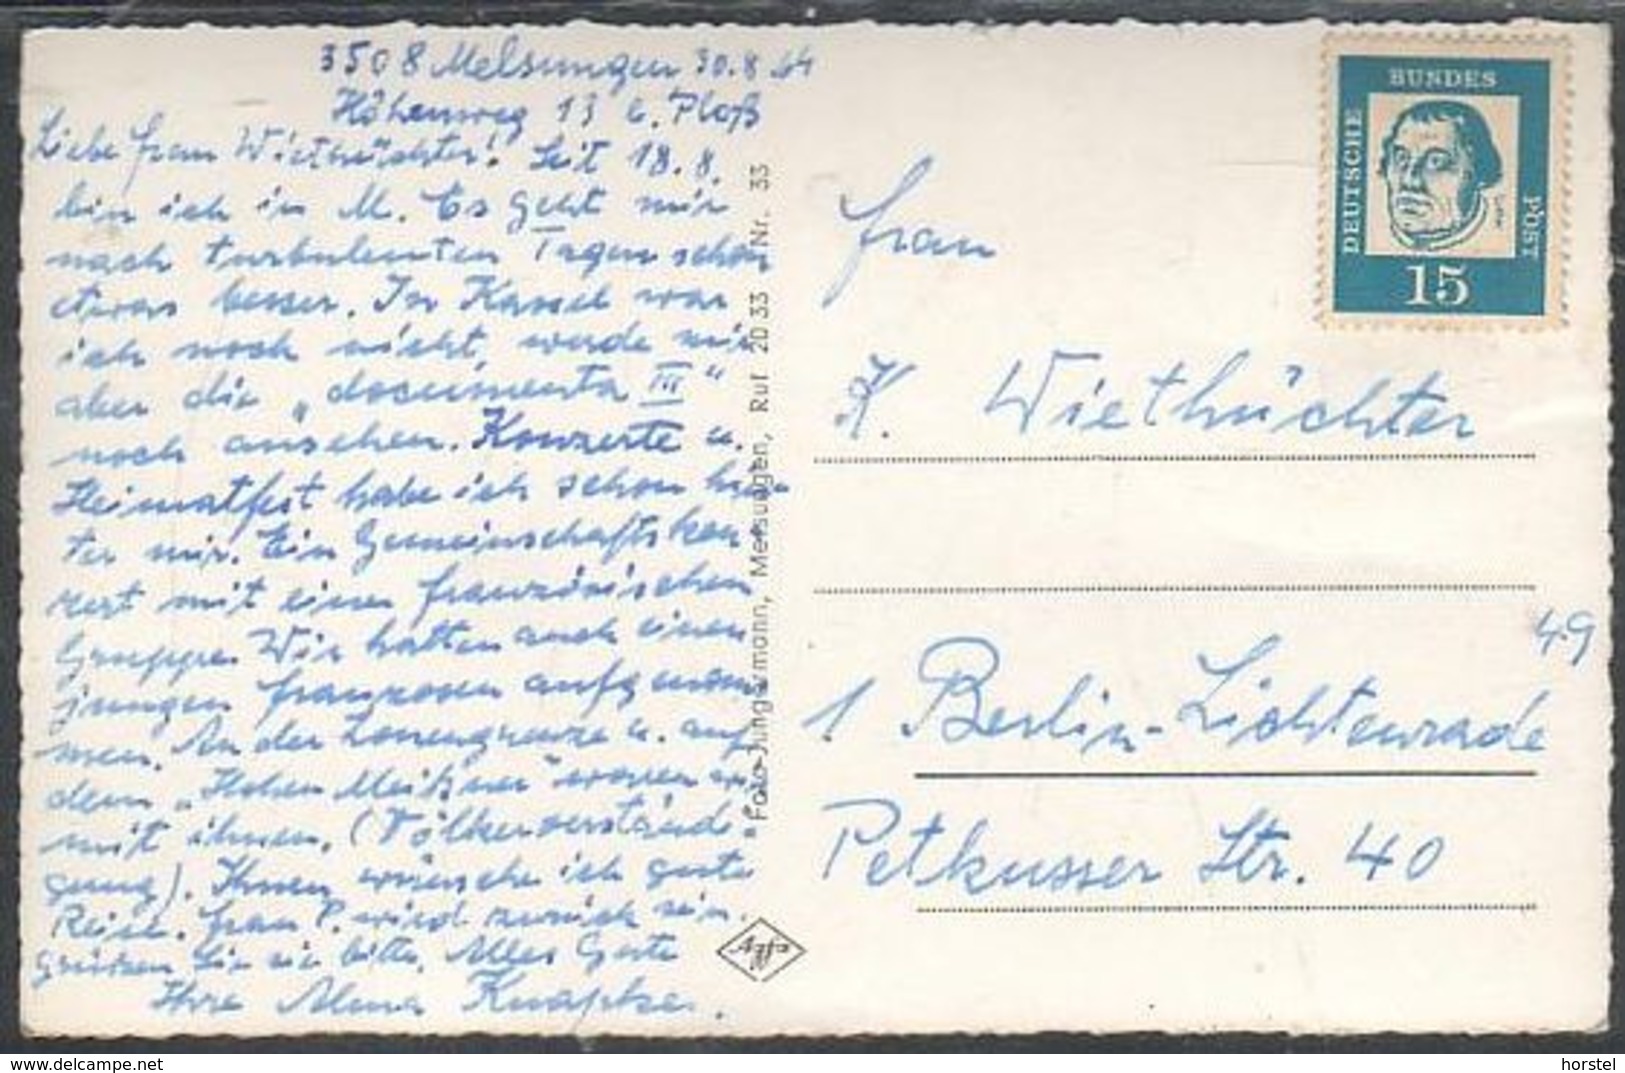 3508 Melsungen 30.8.64
Höhenweg 13 b. Ploß
Liebe Frau Wiethüchter! Seit 18.8.
bin ich in M. Es geht mir
nach turbulenten Tagen schon
etwas besser. In Kassel war
ich noch nicht, werde mir
aber die „documenta III"
noch ansehen. Konzerte u.
Heimatfest habe ich schon hin-
ter mir. Ein Gemeinschaftskon
zert mit einer französischen
Gruppe. Wir hatten auch einen
jungen Franzosen aufgenom
men. An der Zonengrenze u. auf
dem „Hohen Meißner" waren wir
mit ihnen. (Völkerverständi-
gung). Ihnen wünsche ich gute
Reise. Frau P. wird zurück sein.
Grüßen Sie sie bitte. Alles Gute
Ihre Alma
Foto-Jungermann, Melsungen, Ruf 2033 Nr. 33
Agfa
BUNDES
DEUTSCHE
POST
15
Frau
K. Wiethüchter
4.9
1 Berlin-Lichtenrade
Petkusser Str. 40
www.delcampe.net
horstel